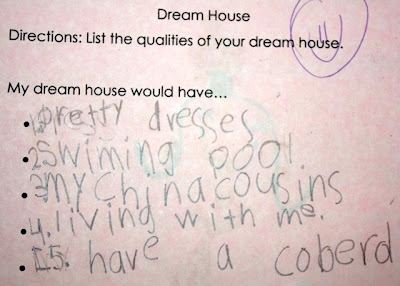 Dream House
Directions: List the qualities of your dream house.
My dream house would have...
• 1. pretty dresses
• 2 swiming pool
• 3 my china cousins
• 4. living with me.
• 5. have a coberd